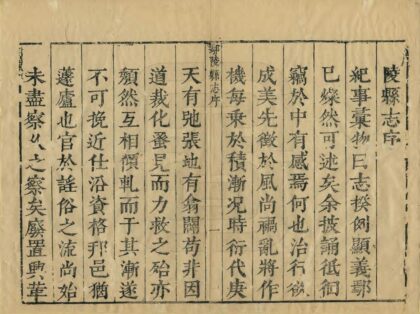 陵縣志序
紀事彙物曰志揆例顯義鄢
已燦然可述矣余披誦低徊
竊於中有感焉何也治行欲
成美先徵於風尚禍亂將作
機每乘於積漸況時衍代庚
鄢陵縣志序
天有弛張地有翕闢苟非因
道裁化蚤見而力救之殆亦
頹然互相傾軋而于其漸遂
不可挽近仕沿資格邦邑猶
蘧廬也官於謠俗之流尚始
未盡察从之察矣廢置興革